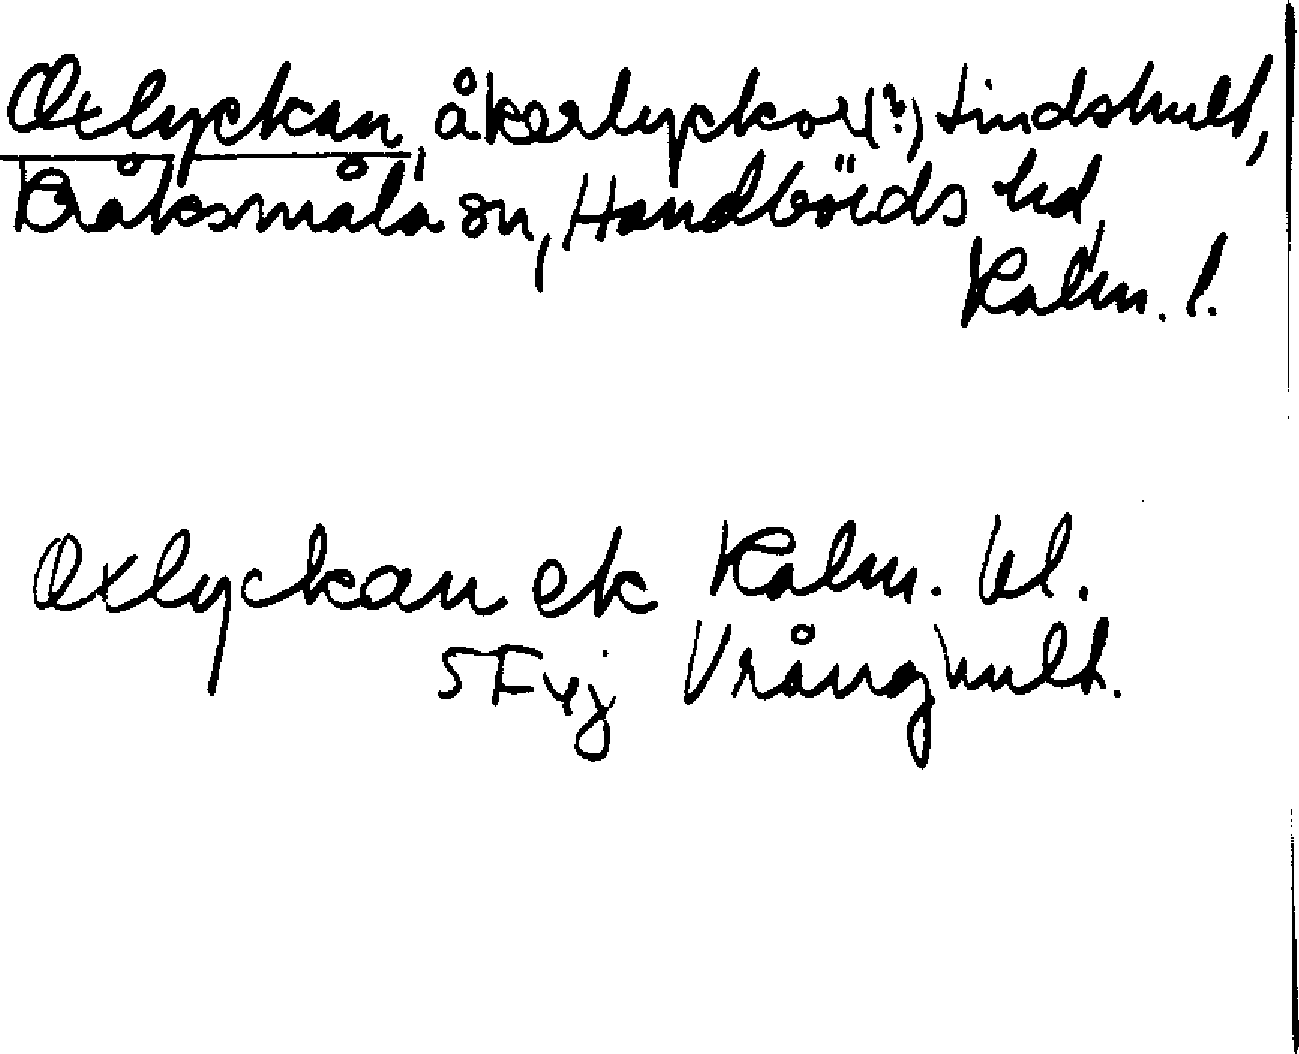 Oxlyckan, åkerlyckor(?) Lindshult,
Bråksmåla sn, Handbörds hd,
Kalm. l.
Oxlyckan ek Kalm. bl.
5 F 4j Vrånghult.